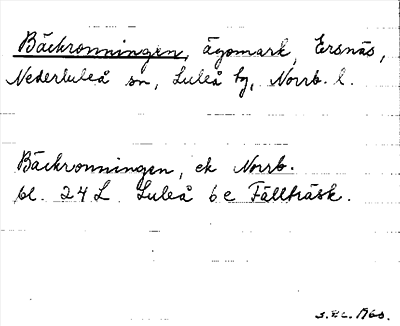 Bäckronningen, ägomark, Ersnäs,
Nederluleå sn, Luleå kg, Norrb. l.
Bäckronningen, ek Norrb.
bl. 24 L Luleå 6 e Fällträsk.